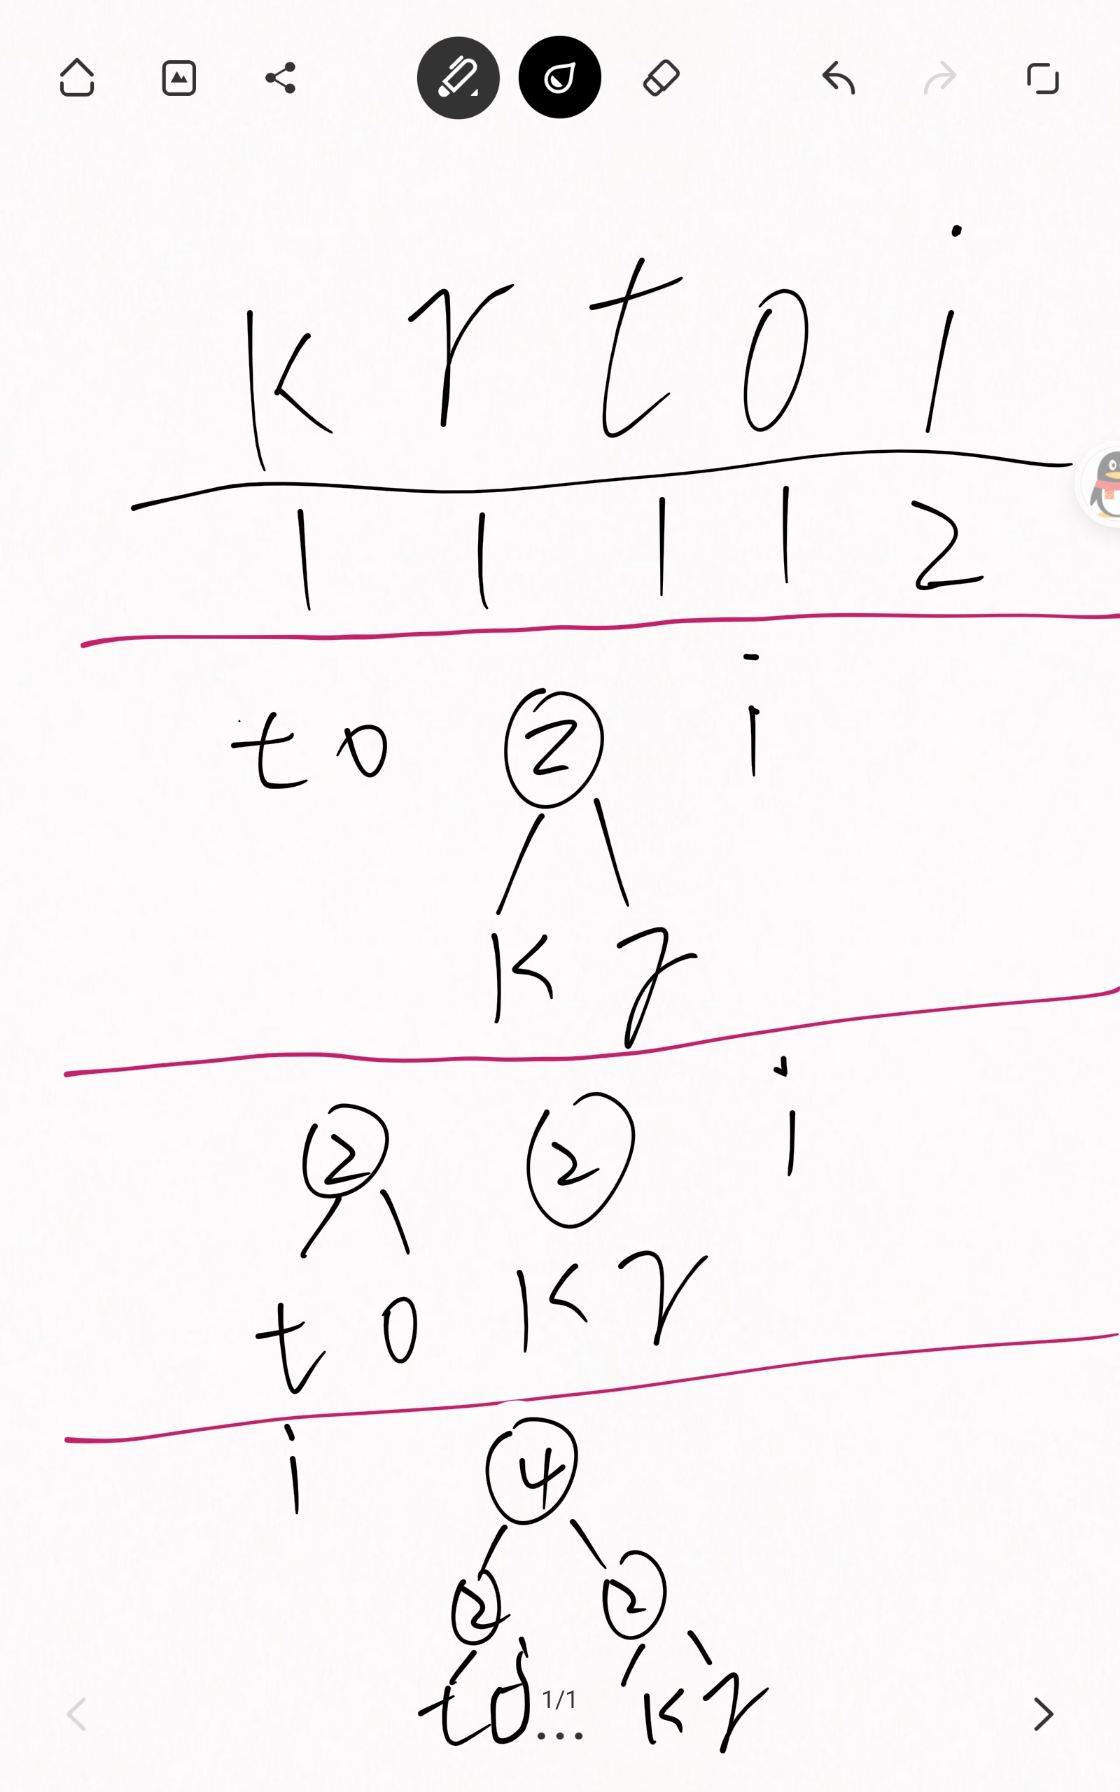 k r t o i
1 1 1 1 2
t o 2 i
k r
2 2 i
t o k r
i 4
2 2
t o k r
1/1